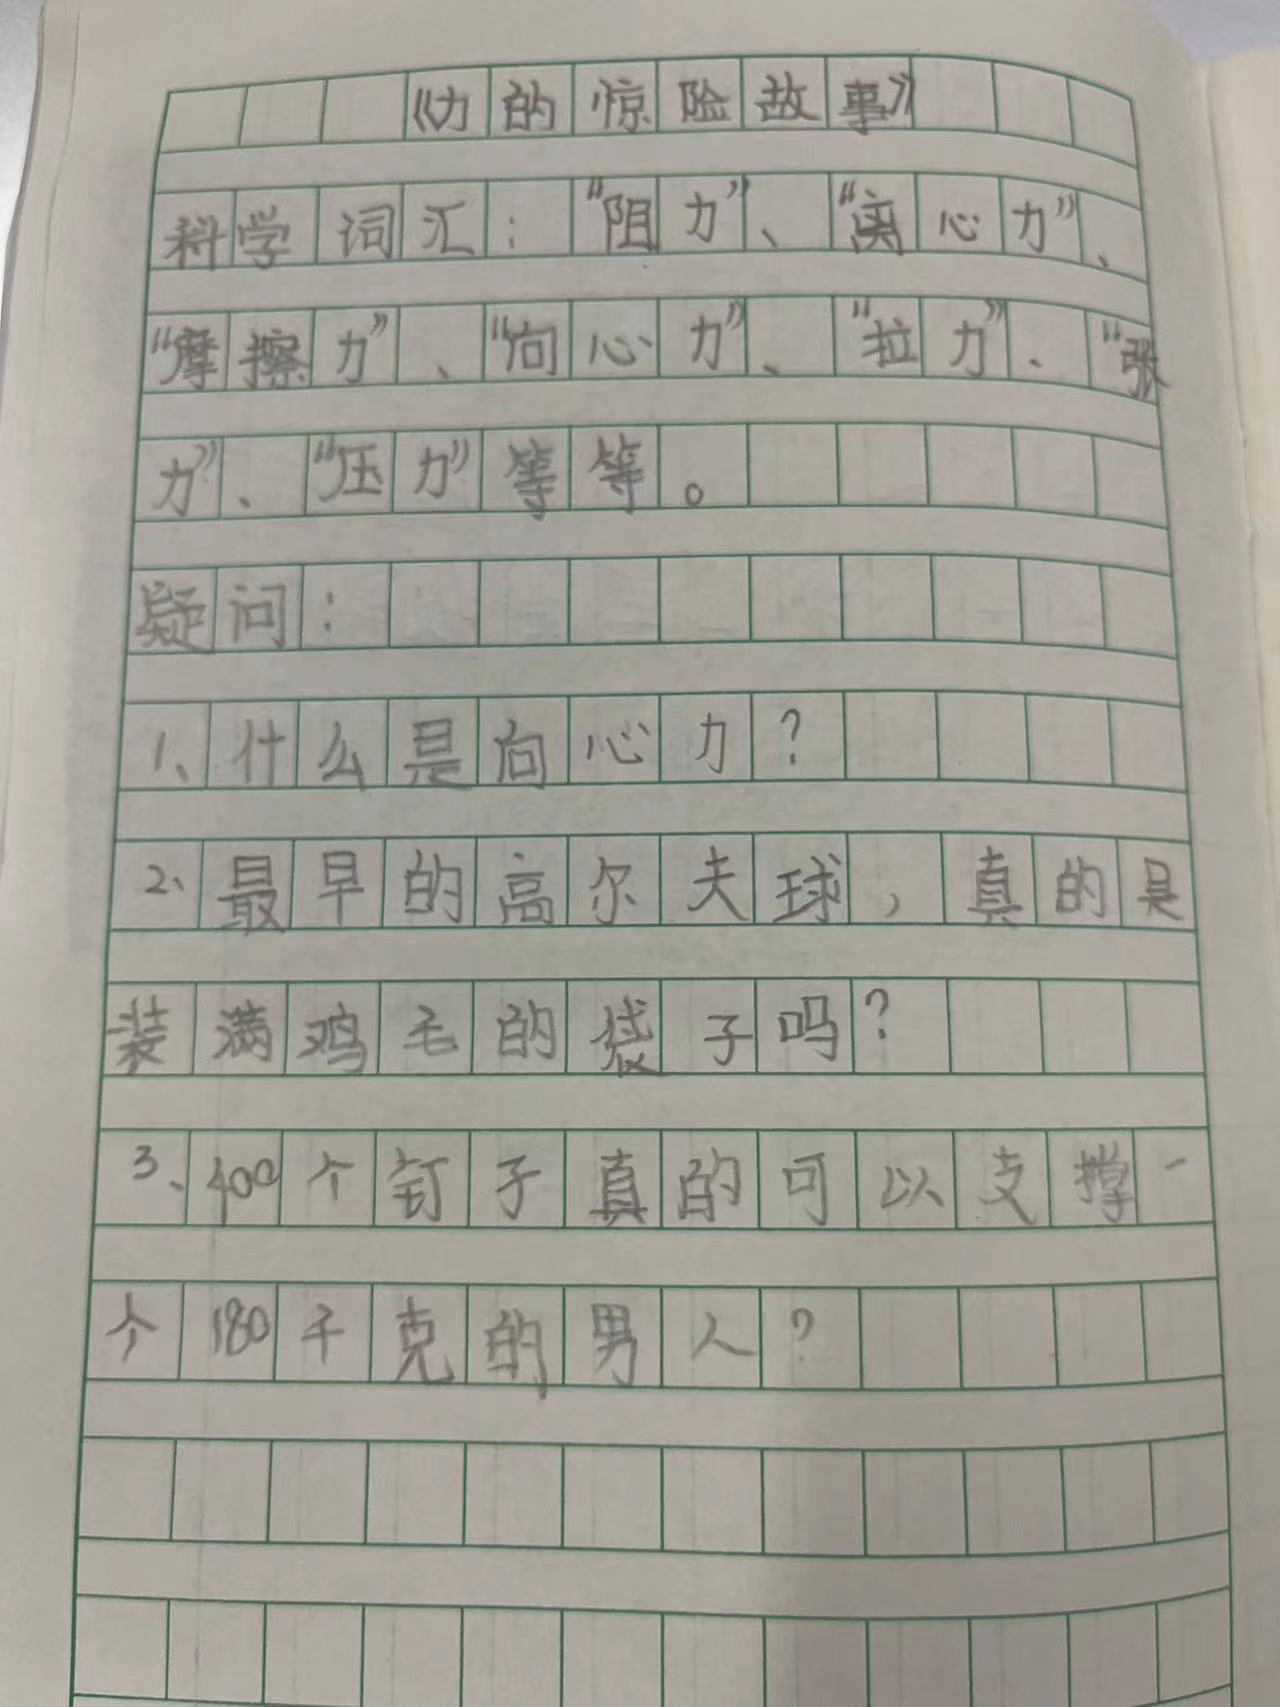 《力的惊险故事》
科学词汇：“阻力”、“离心力”、
“摩擦力”、“向心力”、“拉力”、“张
力”、“压力”等等。
疑问：
1、什么是向心力？
2、最早的高尔夫球，真的是
装满鸡毛的袋子吗？
3、400个钉子真的可以支撑一
个180千克的男人？